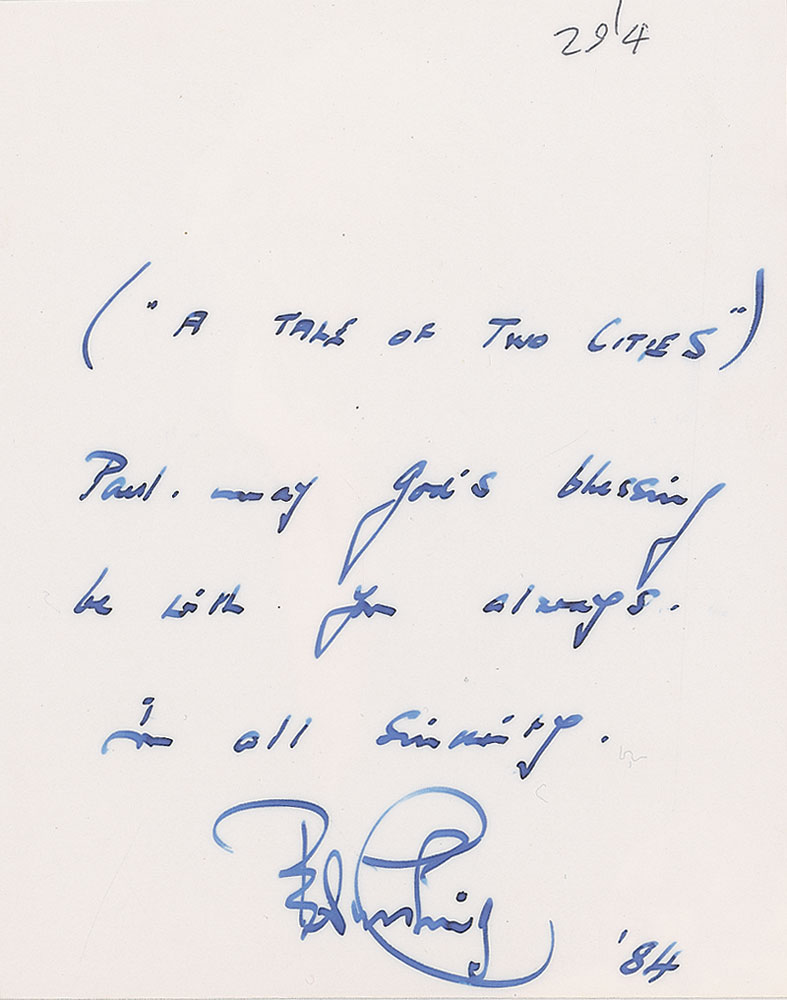 29/4
("A TALE OF TWO CITIES")
Paul. may God's blessing
be with you always.
in all sincerity.
Peter Cushing
'84